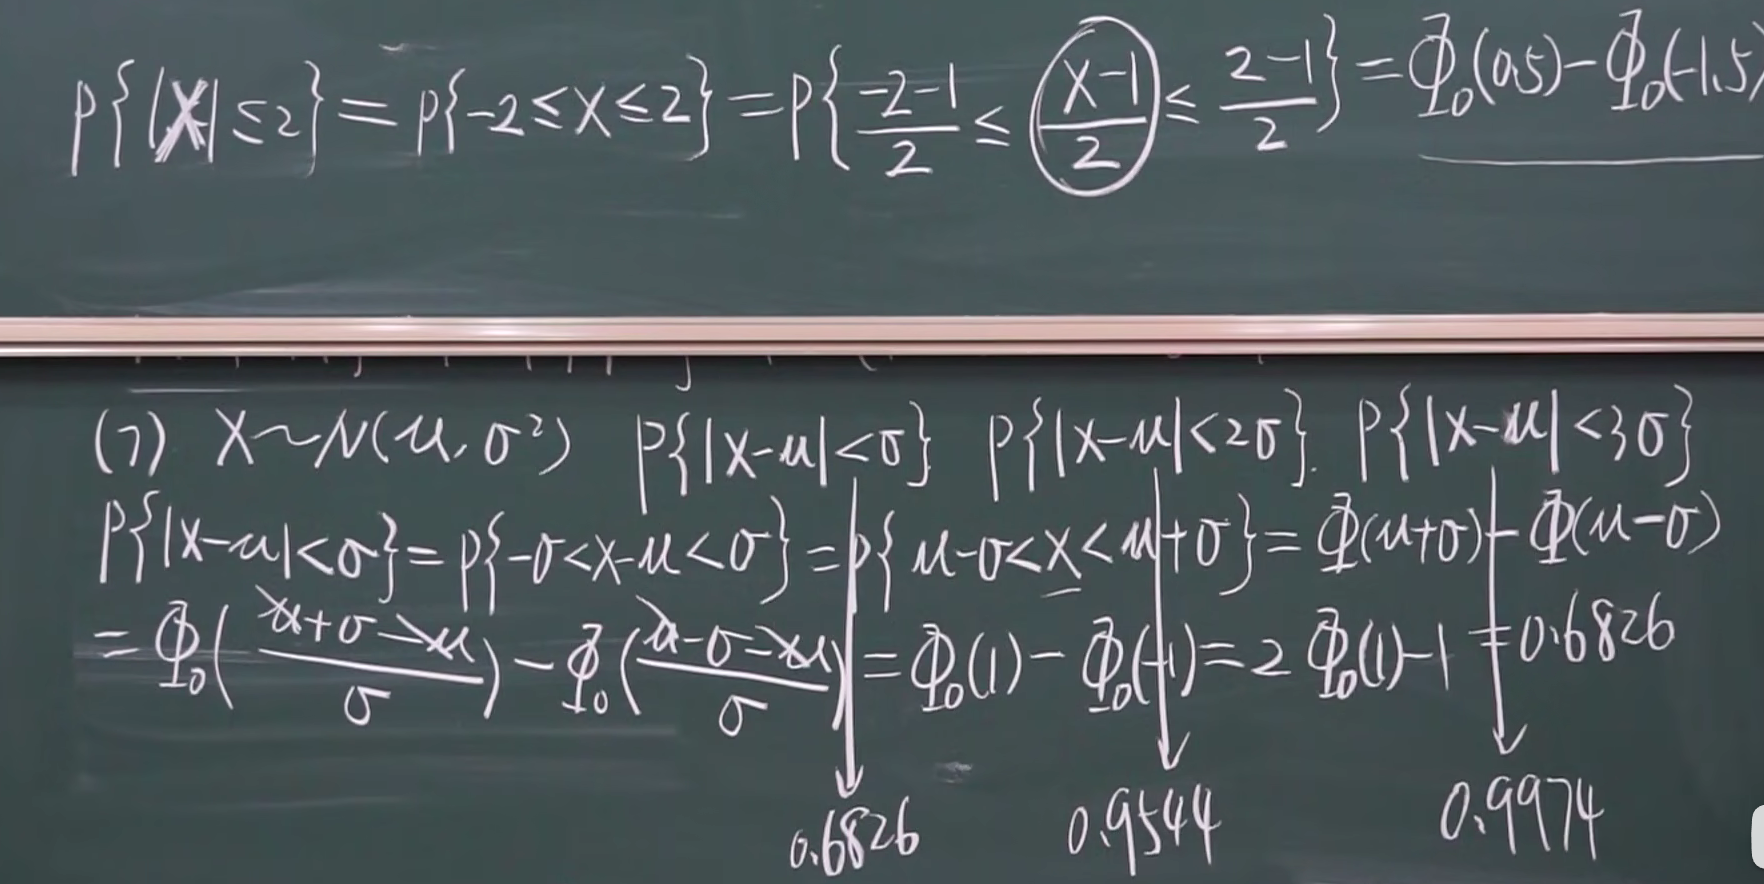 P{|X|≤2}=P{-2≤X≤2}=P{(-2-1)/2≤(X-1)/2≤(2-1)/2}=Φ₀(0.5)-Φ₀(-1.5)
(7) X~N(μ,σ²) P{|X-μ|<σ}. P{|X-μ|<2σ}. P{|X-μ|<3σ}
P{|X-μ|<σ}=P{-σ<X-μ<σ}=P{μ-σ<X<μ+σ}=Φ(μ+σ)-Φ(μ-σ)
=Φ₀((μ+σ-μ)/σ)-Φ₀((μ-σ-μ)/σ)=Φ₀(1)-Φ₀(-1)=2Φ₀(1)-1=0.6826
0.6826 0.9544 0.9974